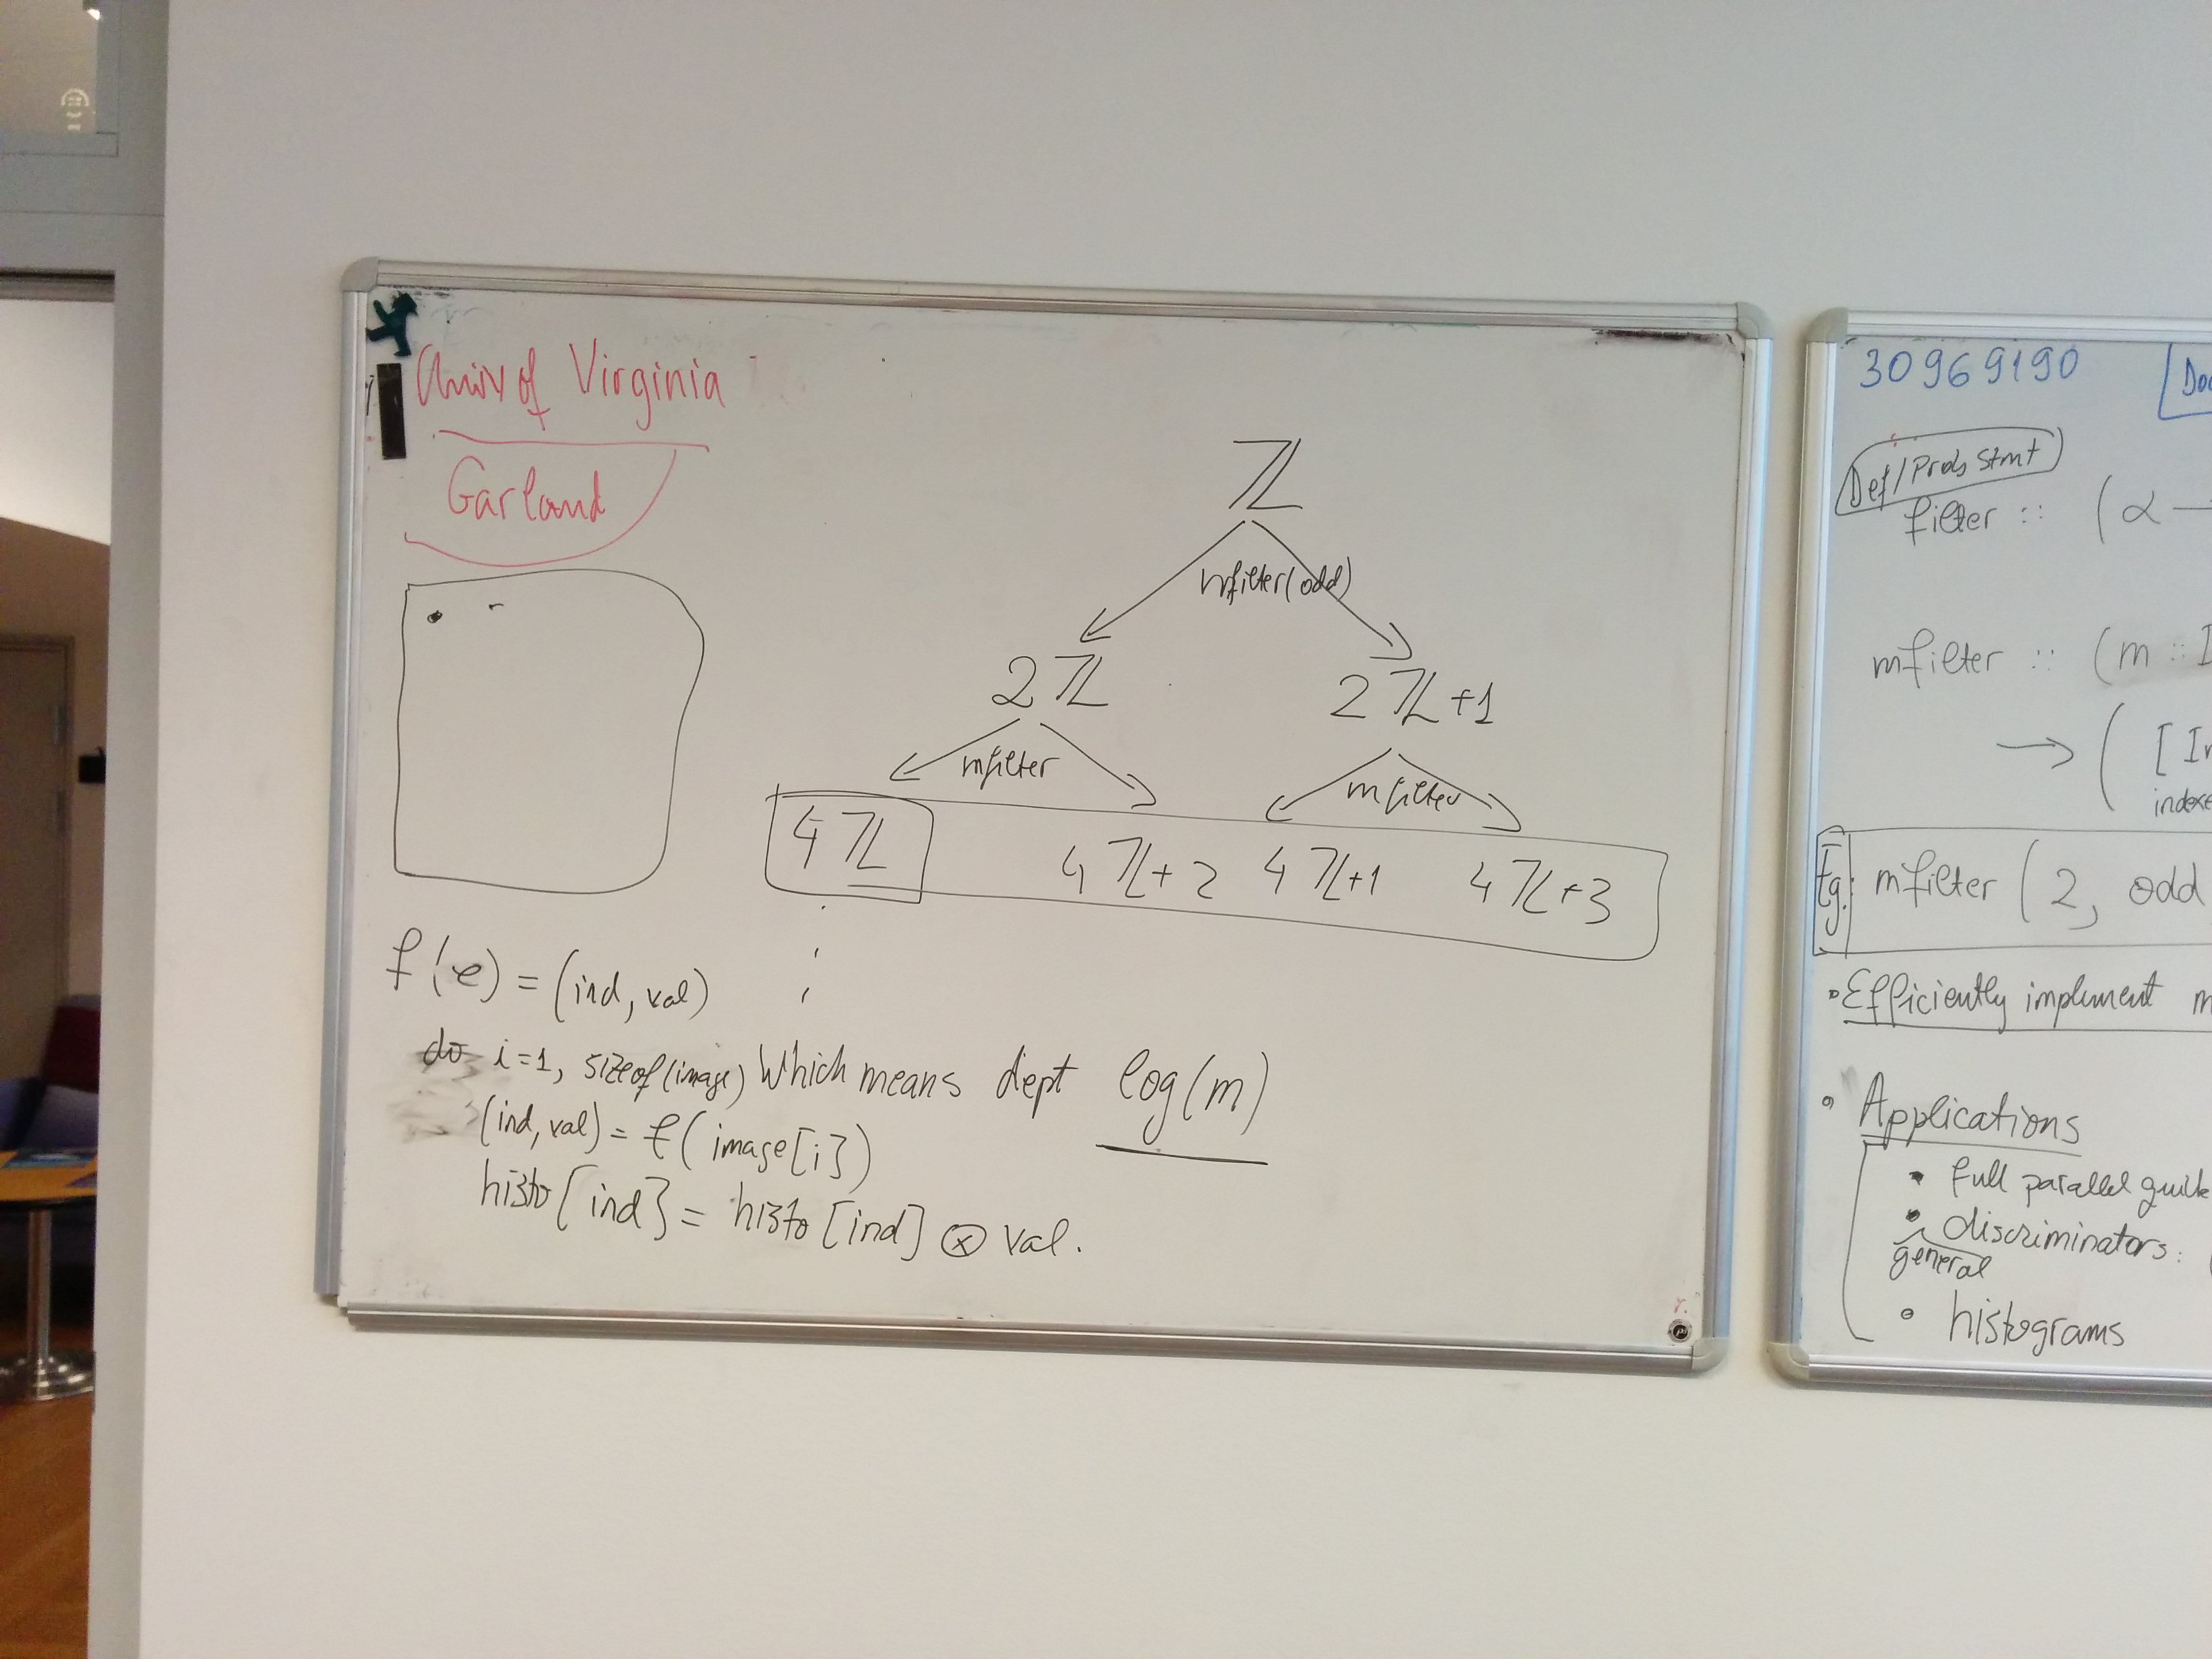 Univ of Virginia
Garland
ℤ
mfilter(odd)
2ℤ
2ℤ+1
mfilter
mfilter
4ℤ
4ℤ+2
4ℤ+1
4ℤ+3
f(e) = (ind, val)
do i=1, sizeof(image)
(ind, val) = f(image[i])
histo[ind] = histo[ind] ⊗ val.
Which means dept log(m)
30969190
Doc
Def/Prob Stmt
filter :: (α –
mfilter :: (m :: I
→ ( [In
indexe
Eg: mfilter (2, odd
• Efficiently implement m
• Applications
• full parallel quick
• discriminators:
general
• histograms